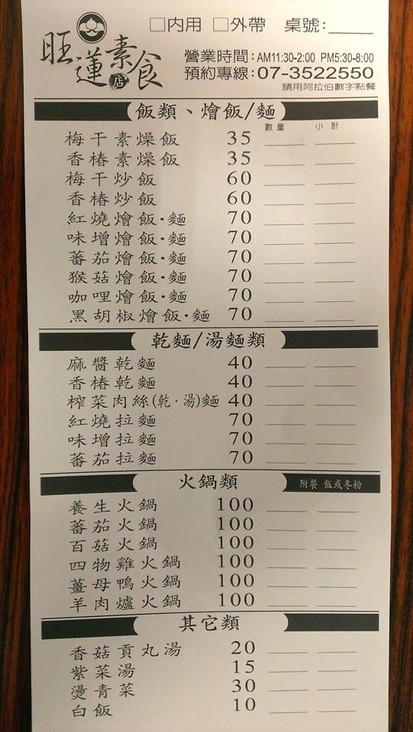 旺蓮素食店
□內用 □外帶 桌號:
營業時間:AM11:30-2:00 PM5:30-8:00
預約專線:07-3522550
請用阿拉伯數字點餐
飯類、燴飯/麵
數量 小計
梅干素燥飯 35
香椿素燥飯 35
梅干炒飯 60
香椿炒飯 60
紅燒燴飯·麵 70
味增燴飯·麵 70
蕃茄燴飯·麵 70
猴菇燴飯·麵 70
咖哩燴飯·麵 70
黑胡椒燴飯·麵 70
乾麵/湯麵類
麻醬乾麵 40
香椿乾麵 40
榨菜肉絲(乾·湯)麵 40
紅燒拉麵 70
味增拉麵 70
蕃茄拉麵 70
火鍋類 附餐 飯或冬粉
養生火鍋 100
蕃茄火鍋 100
百菇火鍋 100
四物雞火鍋 100
薑母鴨火鍋 100
羊肉爐火鍋 100
其它類
香菇貢丸湯 20
紫菜湯 15
燙青菜 30
白飯 10